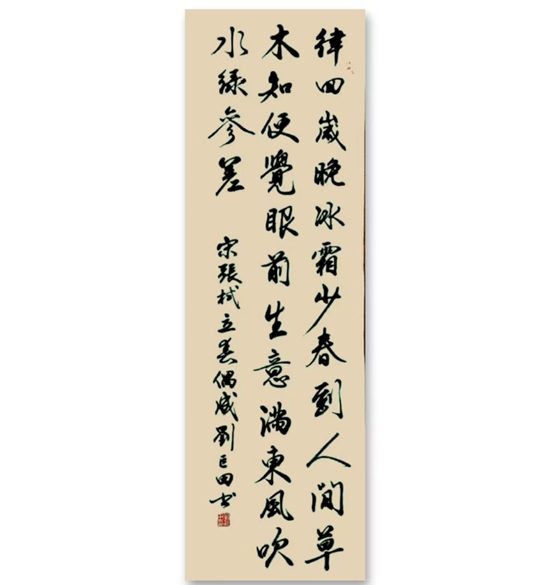 律回歲晚冰霜少春到人間草
木知便覺眼前生意滿東風吹
水綠參差
宋張栻立春偶成劉巨田書